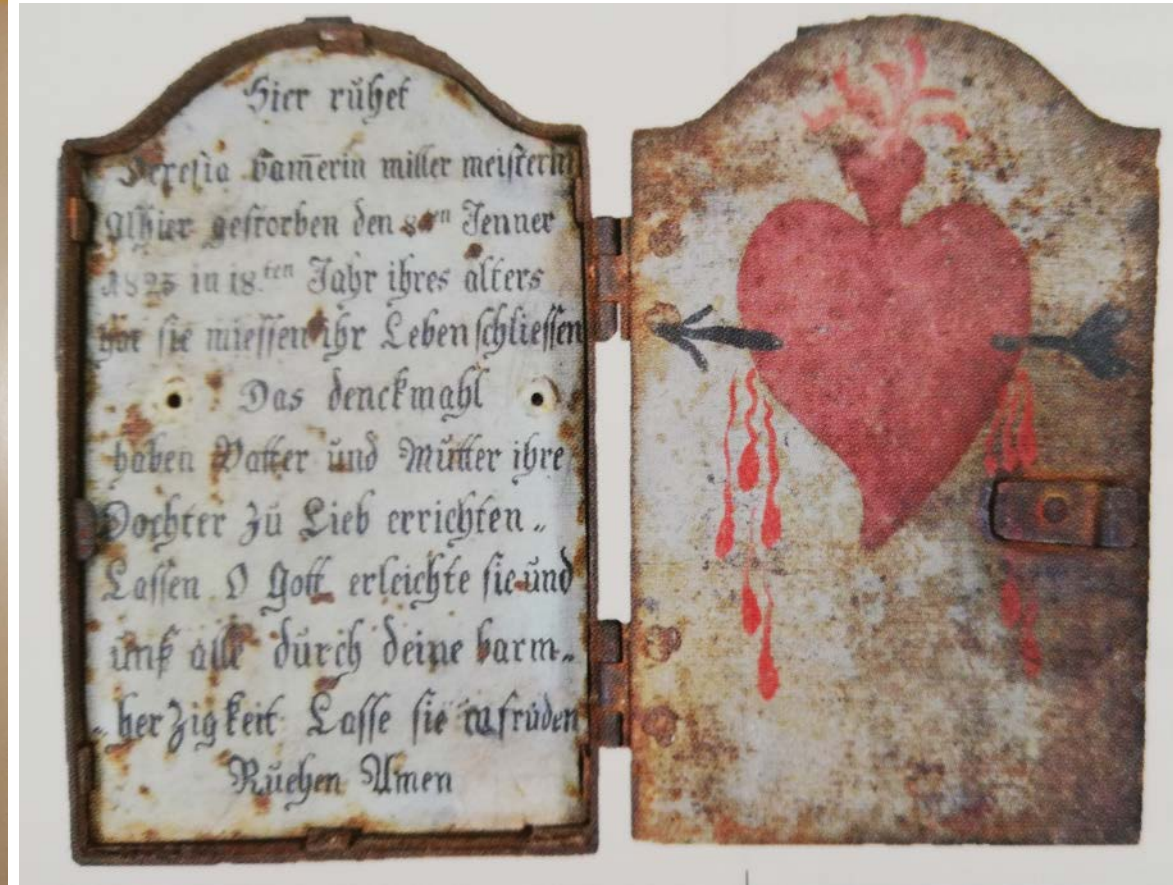 Hier ruhet
Teresia bam̅erin miller meisterin
Alhier gestorben den 8ten Jenner
1825 in 18.ten Jahr ihres alters
hat sie miessen ihr Leben schliessen
Das denckmahl
haben Vatter und Mutter ihre
Dochter zu Lieb errichten„
Lassen O Gott erleichte sie und
unß alle durch deine barm„
„herzigkeit Lasse sie in friden
Ruehen Amen